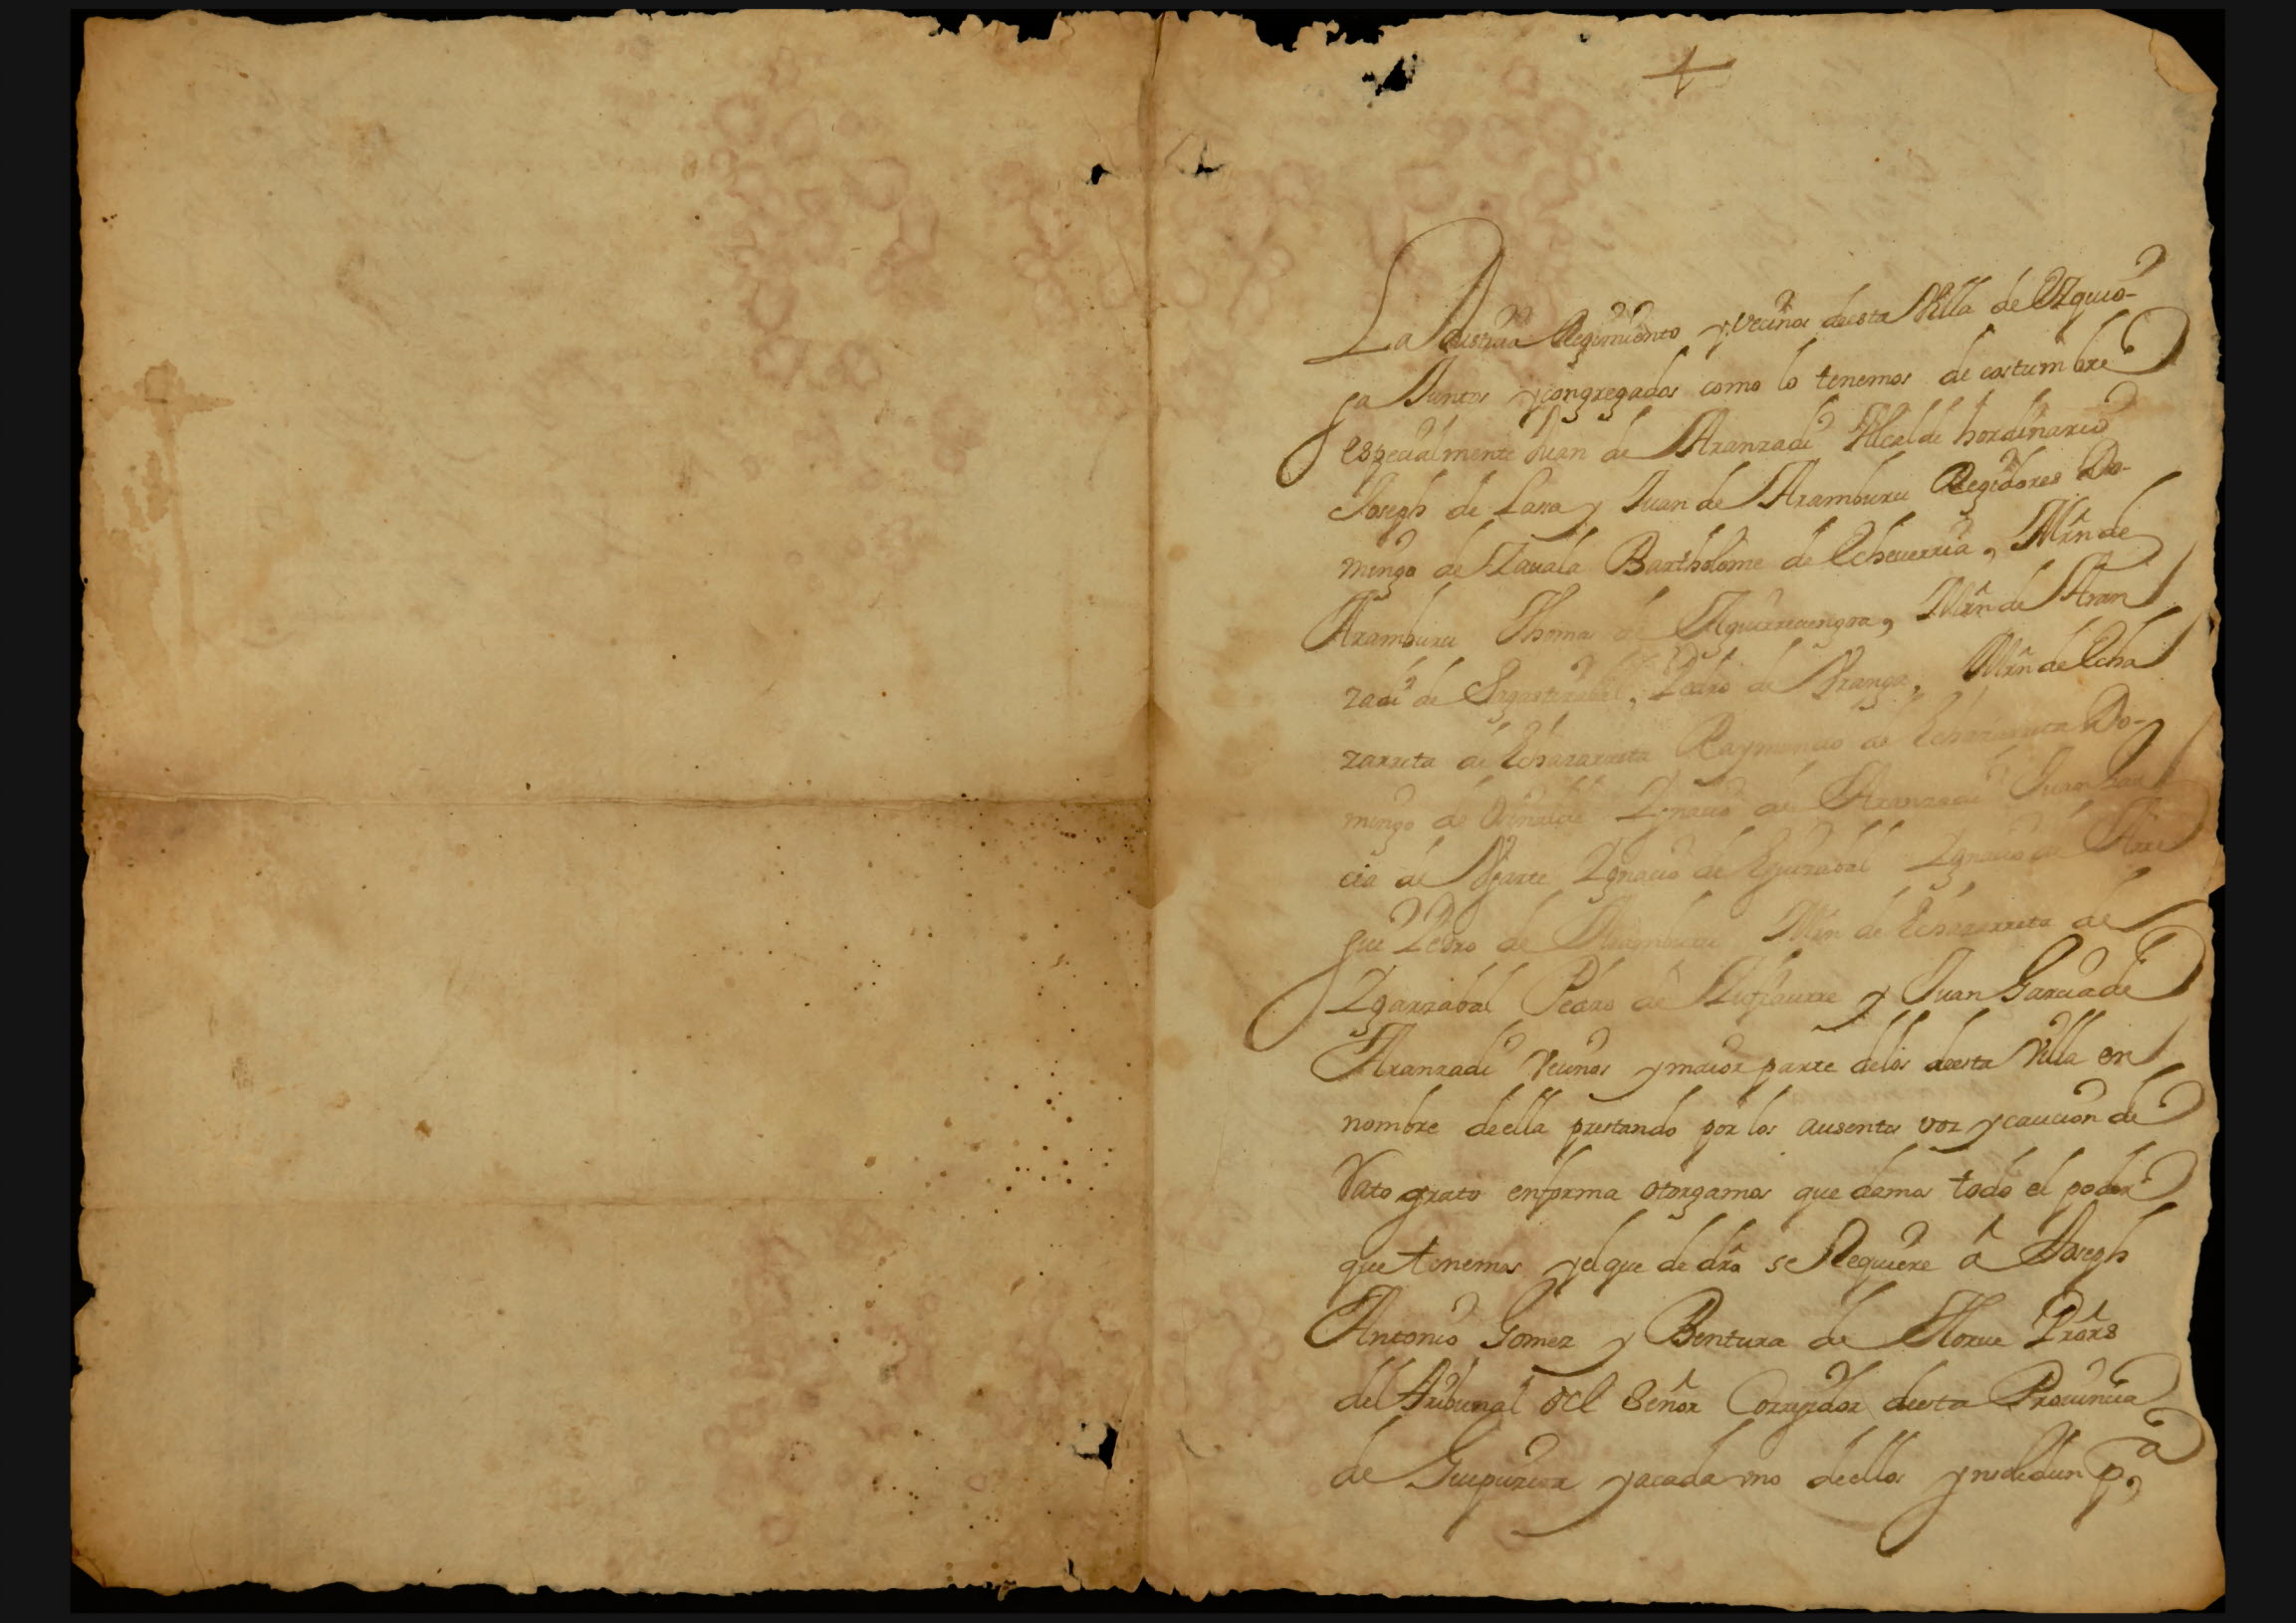 La Justicia Regimiento y vecinos deesta Villa de Ezquio-
ga Juntos y congregados como lo tenemos de costumbre
especialmente Juan de Aranzadi Alcalde hordinario
Joseph de Lasa y Juan de Aramburu Regidores Do-
mingo de Zauala Bartholome de Echeuerria, Mrn de
Aramburu Thomas de Aguirreuengoa, Mrn de Aran
zadi de Sagastizabal, Pedro de Mrn de Echa
zarreta de Echazarreta Raymundo de Echazarreta Do-
mingo de Ignacio de Aranzadi Juan Gar
cia de Ugarte Ignacio de Eguzabal Ignacio de Arri
gui Pedro de Aramburu Mrn de Echazarreta de
Igarzabal Pedro de y Juan Garcia de
Aranzadi Vecinos y maior parte delos deesta Villa en
nombre deella prestando por los ausentes voz y caucion de
Rato grato enforma otorgamos que damos todo el poder
que tenemos y el que de dro se Requiere â Joseph
Antonio Gomez y Bentura de Prors
del Tribunal del Señor Corregidor deesta Prouincia
de Guipuzcoa y acada vno deellos ynsolidun pa